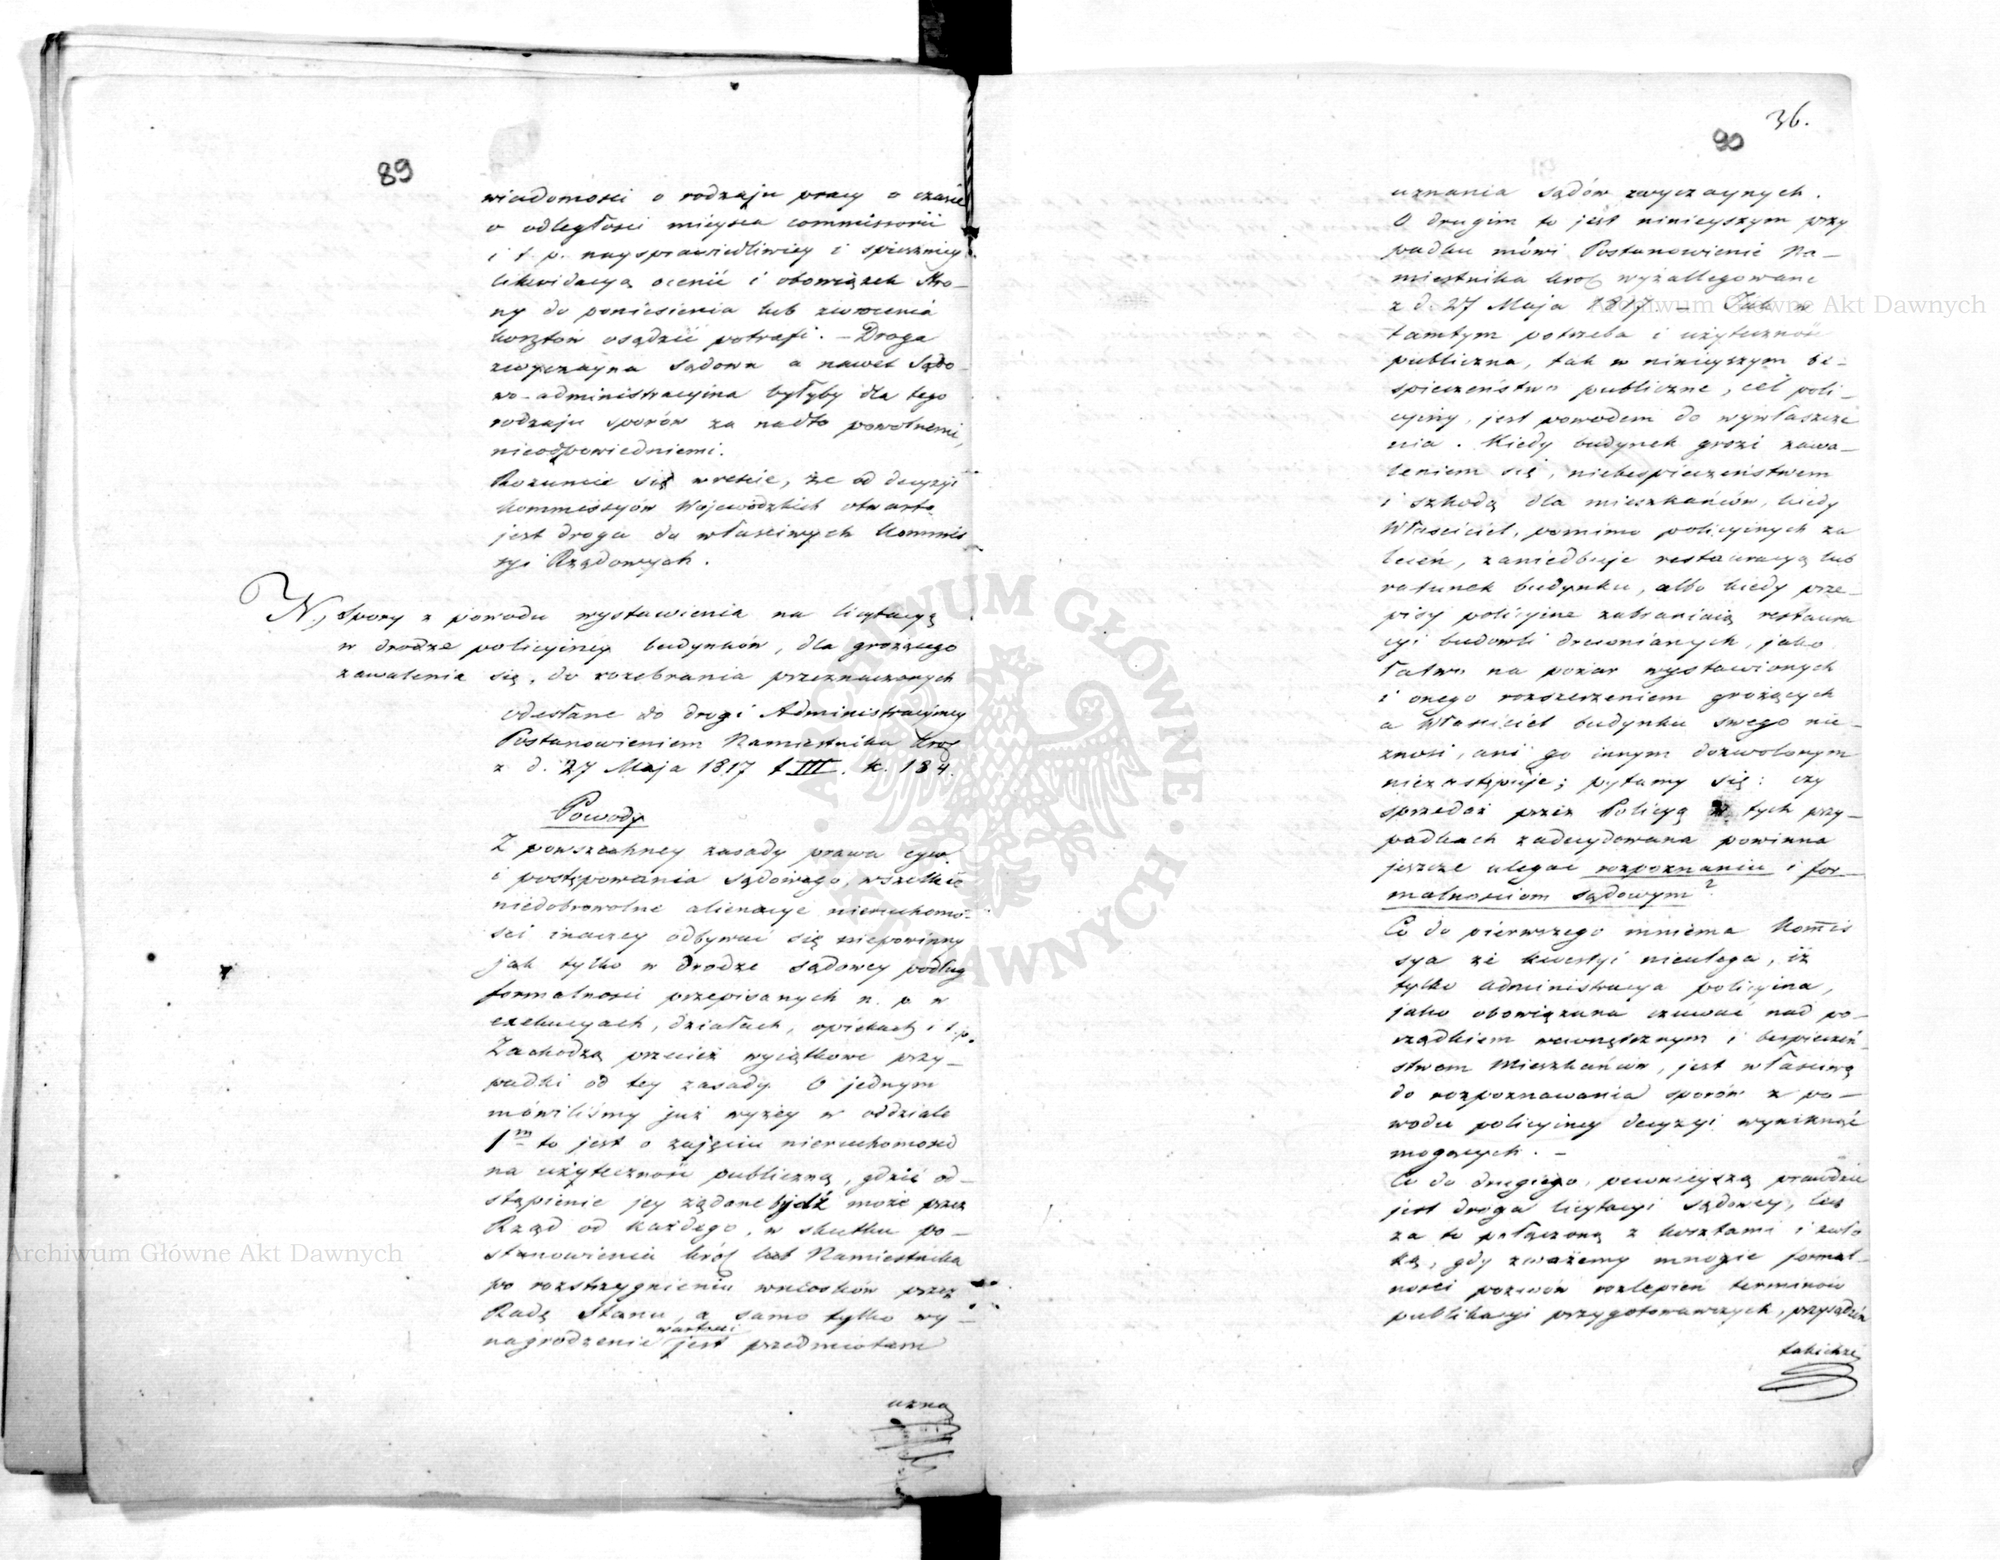 89
wiadomości o rodzaju pracy o czasie
o odległości mieysca commissorii
i t. p. naysprawiedliwiey i spieszniey
likwidacyą ocenić i obowiązek stro-
ny do poniesienia lub zwrócenia
kosztów osądzić potrafi. – Droga
zwyczayna sądowa a nawet Sądo-
wo-administracyina byłyby dla tego
rodzaju sporów za nadto powolnemi,
nieodpowiedniemi.
Rozumie się wreście, że od decyzyi
Kommissyów Wojewódzkich otwarta
jest droga do właściwych Kommis
syi Rządowych.
N., Spory z powodu wystawienia na licytacyą
w drodze policyiney budynków, dla grożącego
zawalenia się, do rozebrania przeznaczonych
odesłane do drogi Administracyiney
Postanowieniem Namiestnika Król
z d. 27 Maja 1817 t III. k. 184.
Powody
Z powszechney zasady prawa cyw.
i postępowania sądowego, wszelkie
niedobrowolne alienacye nieruchomo-
ści inaczey odbywać się niepowinny
jak tylko w drodze sądowey podług
formalności przepisanych n. p. w
exekucyach, działach, opiekach i t. p.
Zachodzą przecież wyiątkowe przy-
padki od tey zasady. O jednym
mówiliśmy już wyżey w oddziale
1m to jest o zajęciu nieruchomości
na użyteczność publiczną, gdzie od-
stąpienie jey żądane bydź może przez
Rząd od każdego, w skutku po-
stanowienia król lub Namiestnika
po rozstrzygnieniu wniosków przez
Radę Stanu, a samo tylko wy-
nagrodzenie wartości jest przedmiotem
uzna
36.
90
uznania sądów zwyczaynych.
O drugim to jest ninieyszym przy
padku mówi Postanowienie Na-
miestnika król wyżallegowane
z d. 27 Maja 1817 – Jak w
tamtym potrzeba i użyteczność
publiczna, tak w ninieyszym be-
spieczeństwo publiczne, cel poli-
cyiny, jest powodem do wywłaszcze
nia. Kiedy budynek grozi zawa-
leniem się, niebespieczeństwem
i szkodą dla mieszkańców, kiedy
Właściciel, pomimo policyinych za
leceń, zaniedbuje restauracyą lub
ratunek budynku, albo kiedy prze-
pisy policyine zabraniaią restaura
cyi budowli drewnianych, jako
łatwo na pożar wystawionych
i onego rozszerzeniem grożących
a Właściciel budynku swego nie-
znosi, ani go innym dozwolonym
niezastępuje; pytamy się: czy
sprzedaż przez Policyą w tych przy-
padkach zadecydowana powinna
jeszcze ulegać rozpoznaniu i for-
malnościom sądowym?
Co do pierwszego mniema Kommis
sya że kwestyi nieulega, iż
tylko administracya policyina,
jako obowiązana czuwać nad po-
rządkiem wewnętrznym i bespieczeń-
stwem Mieszkańców, jest właściwą
do rozpoznawania sporów z po-
wodu policyiney decyzyi wyniknąć
mogących. –
Co do drugiego, pewnieyszą prawdzie
jest droga licytacyi sądowey, lecz
za to połączoną z kosztami i zwło
ką, gdy zważemy mnogie formal-
ności pozwów rozlepień terminów
publikacyi przygotowawczych, przysądzeń
takichże
Archiwum Główne Akt Dawnych
Archiwum Główne Akt Dawnych
ARCHIWUM GŁÓWNE AKT DAWNYCH